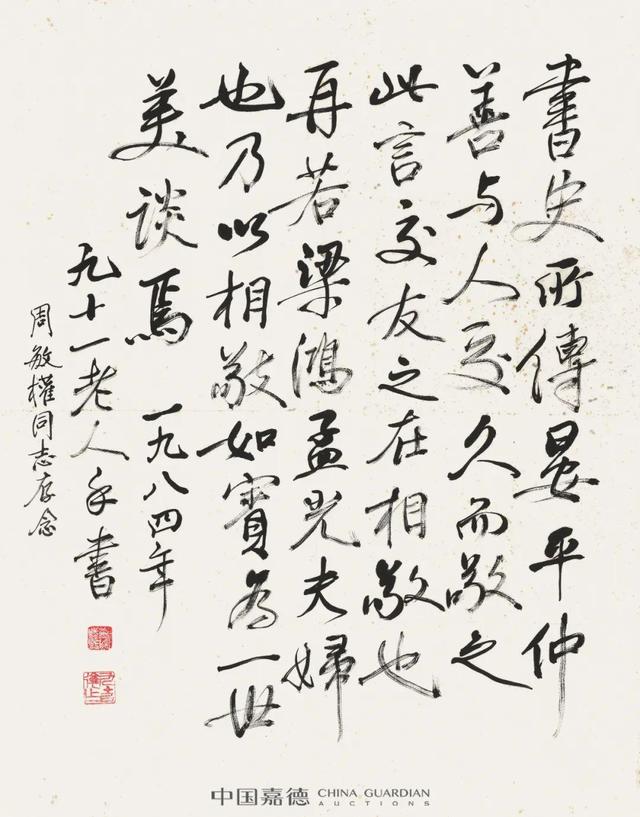 書史所傳晏平仲
善与人交久而敬之
此言交友之在相敬也
再若梁鴻孟光夫婦
也乃以相敬如賓為一世
美談焉 一九八四年
九十一老人手書
周敏權同志存念
中国嘉德 CHINA GUARDIAN
AUCTIONS